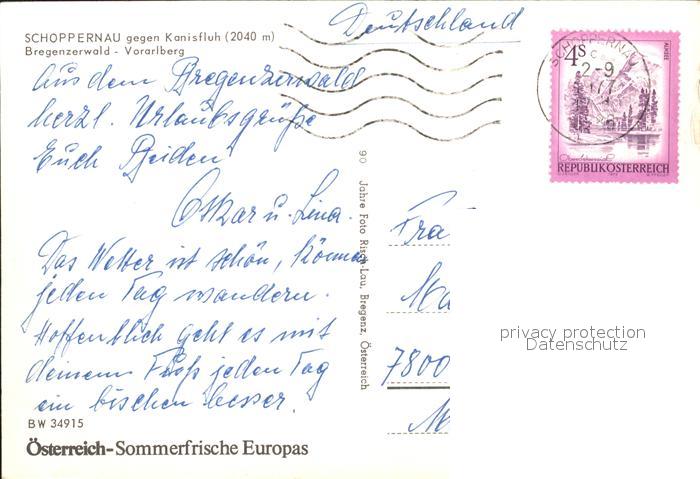 Deutschland
SCHOPPERNAU gegen Kanisfluh (2040 m)
Bregenzerwald - Vorarlberg
Aus dem Bregenzerwald
herzl. Urlaubsgrüße
Euch Beiden
Oskar u. Lina.
Das Wetter ist schön, können
jeden Tag wandern.
Hoffentlich geht es mit
deinem Fuß jeden Tag
ein bischen besser.
BW 34915
Österreich-Sommerfrische Europas
90 Jahre Foto Risch-Lau, Bregenz, Österreich
4S
ALMSEE
REPUBLIK ÖSTERREICH
SCHOPPERNAU
2-9
77
Frä
Ma
7800
privacy protection
Datenschutz